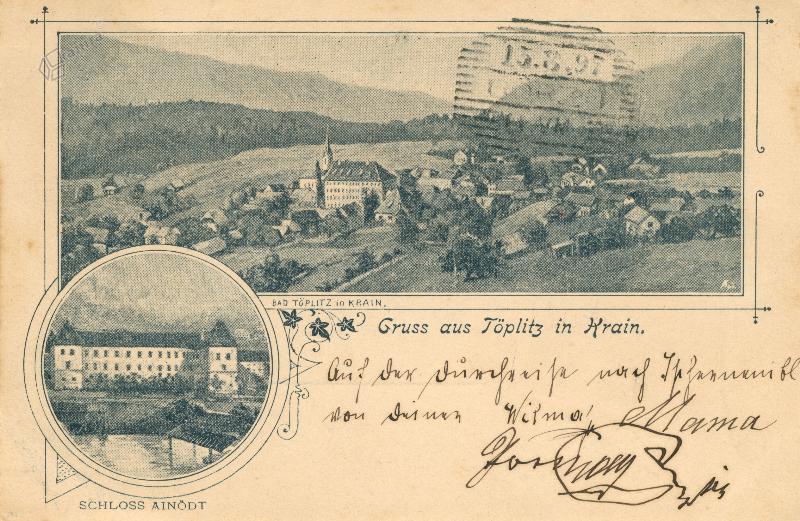 Kamra
15.8.97
BAD TÖPLITZ in KRAIN.
Gruss aus Töplitz in Krain.
Auf der Durchreise nach Tschernembl
von deiner Wilma, Mama
SCHLOSS AINÖDT